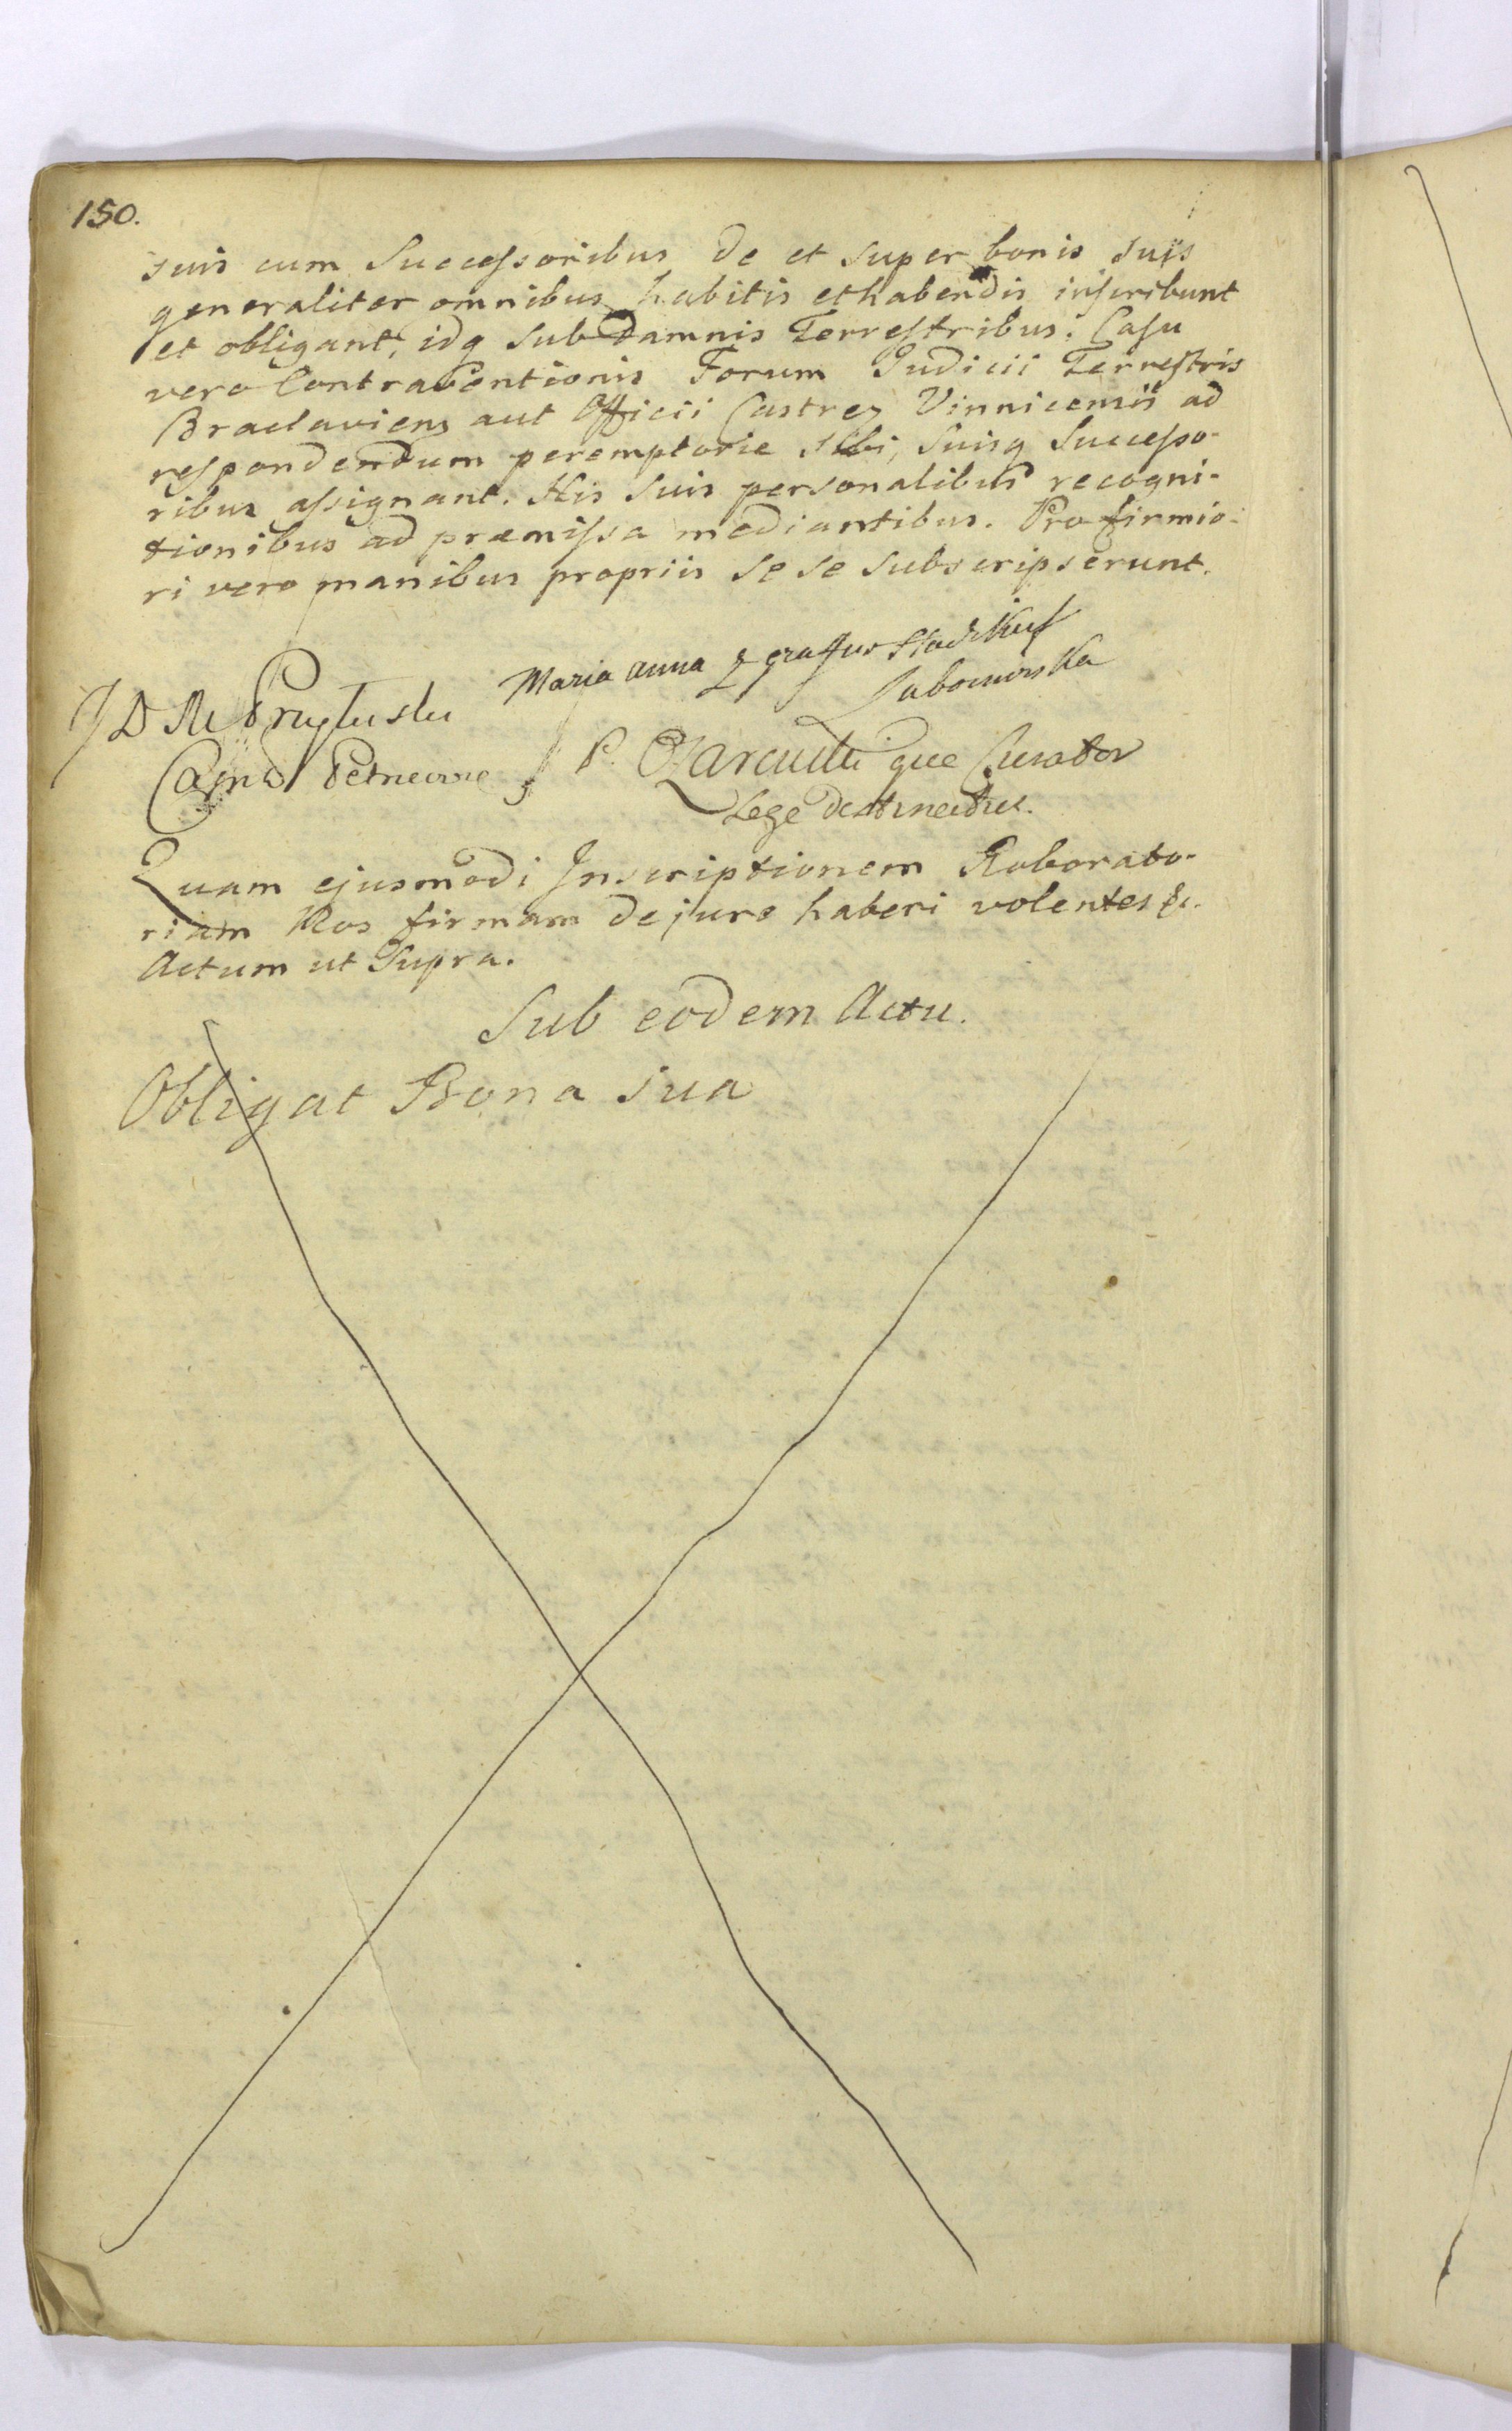 150.
suis cum Successoribus de et super bonis suis
generaliter omnibus habitis et habendis inscribunt
et obligant, idq sub damnis Terrestribus. Casu
vero Contraventionis Forum Judicii Terrestris
Braclaviens aut Officii Castren Vinnicensis ad
respondendum peremptorie sibi, suisq Successo-
ribus assignant. His suis personalibus recogni-
tionibus ad præmissa mediantibus. Pro firmio-
ri vero manibus propriis se se subscripserunt.
Maria anna z
Lubomirska
J D M
P. que Curator
Lege
Quam ejusmodi Inscriptionem Roborato-
riam Nos firmam de jure haberi volentes &c.
Actum ut Supra.
Sub eodem Actu.
Obligat Bona sua